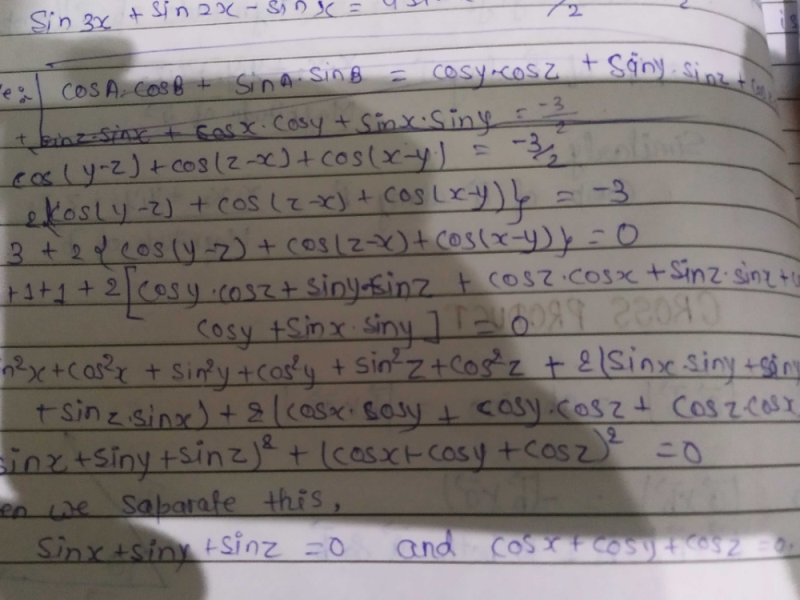 Sin 3x + sin 2x - sin x =
cosA.cosB + sinA.sinB = cosy.cosz + siny.sinz + cos
+ sinz.sinx + cosx.cosy + sinx.siny = -3/2
cos(y-z) + cos(z-x) + cos(x-y) = -3/2
2{cos(y-z) + cos(z-x) + cos(x-y)} = -3
3 + 2{cos(y-z) + cos(z-x) + cos(x-y)} = 0
+1+1 + 2[cosy.cosz + siny.sinz + cosz.cosx + sinz.sinx +
cosy + sinx.siny] = 0
in²x + cos²x + sin²y + cos²y + sin²z + cos²z + 2(sinx.siny + siny
+ sinz.sinx) + 2(cosx.cosy + cosy.cosz + cosz.cosx
sinx + siny + sinz)² + (cosx + cosy + cosz)² = 0
en we saparate this,
sinx + siny + sinz = 0 and cosx + cosy + cosz = 0.